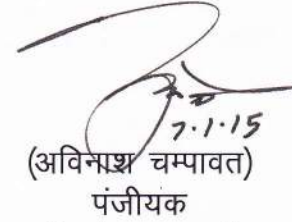 7.1.15
(अविनाश चम्पावत)
पंजीयक